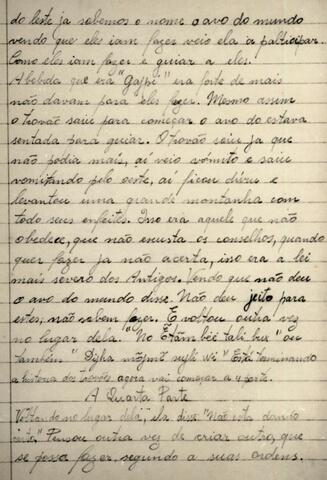 do leste ja sabemos o nome o avo do mundo
vendo que eles iam fazer veio ela a participar
Como eles iam fazer e guiar a eles.
A bebida que era "Gajpi" era forte de mais
não davam para eles fazer. Mesmo assim
o trovão saiu para começar o avo do estava
sentada para guiar. O trovão saiu ja que
não podia mais, aí veio vomito e saiu
vomitando pelo oeste, aí ficou e
levantou uma grande montanha com
todo seus enfeites. Isso era aquele que não
obedece, que não escuta os conselhos, quando
quer fazer ja não acerta, isso era a lei
mais severo dos Antigos. Vendo que não deu
o avo do mundo disse. Não deu jeito para
estes, não sabem fazer. E voltou outra vez
no lugar dela. No bëë tali "ou
também" wi" Está terminando
a historia do trovões agora vai começar a 4 parte.
A Quarta Parte
Voltando no lugar dela, ela disse, "Não está dando
certo," Pensou outra vez de criar outro, que
se possa fazer segundo a suas ordens.